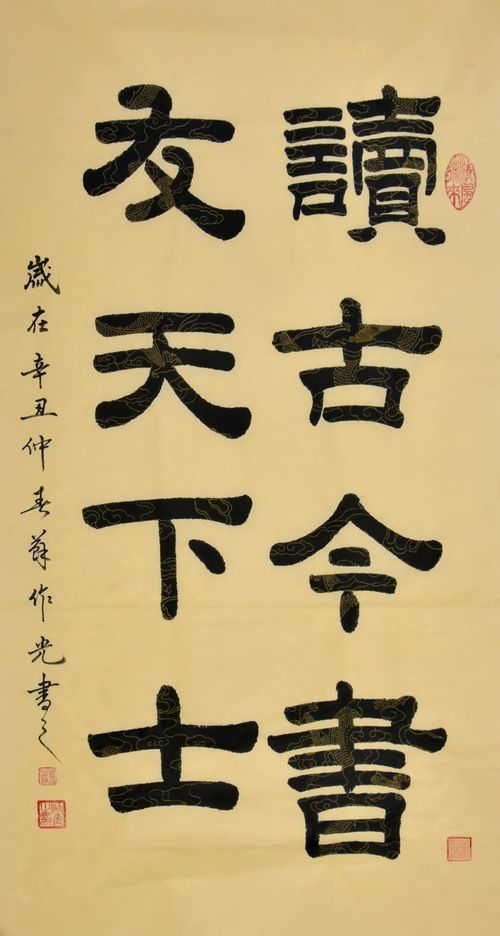 讀古今書
友天下士
歲在辛丑仲春蘇作光書之